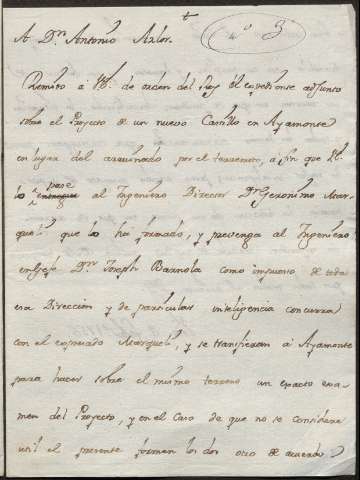 +
N.º 3
A D.n Antonio Azlor.
Remito à VE. de orden del Rey el expediente adjunto
sobre el Proyecto de un nuevo Castillo en Ayamonte
en lugar del arruinado por el terremoto, à fin que VE.
lo pase al Ingeniero Director D.n Geronimo Mar-
queli que lo ha formado, y prevenga al Ingeniero
en Gefe D.n Joseph Barnola como impuesto de toda
esa Direccion y de particular inteligencia concurra
con el expresado Marqueli, y se transfieran à Ayamonte
para hacer sobre el mismo terreno un exacto exa-
men del Proyecto, y en el Caso de que no se considere
util el presente formen los dos otro de acuerdo